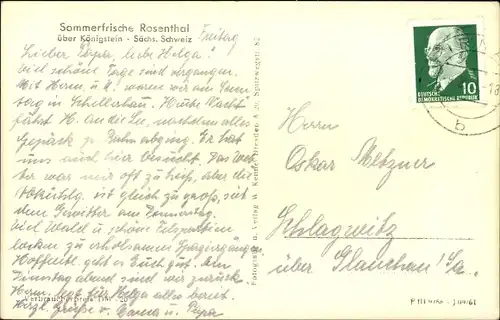 Sommerfrische Rosenthal
über Königstein - Sächs. Schweiz
Freitag
Lieber Papa, liebe Helga!
Viel schöne Tage sind vergangen.
Mit Herm. u. waren wir am Sonn-
tag in Schellerhau. Heute Nacht
fährt H. an die See, nachdem alles
Gepäck p. Bahn abging. Er hat
uns auch hier besucht. Das Wet-
ter war nur oft zu heiß, aber die
Abkühlg. ist gleich zu groß, seit
dem Gewitter am Donnerstag.
Viel Wald u. schöne Felspartien
locken zu erholsamen Spaziergängen
Hoffentl. geht es Euch gut. Am
Dienstag abend sind wir zurück.
Herm. legt für Helga alles bereit.
Verbraucherpreis DM -.20
Herzl. Grüße v. Mama u. Papa
Fotograf. u. Verlag W. Dresden A 20, Spitzwegstr. 82
DEUTSCHE
DEMOKRATISCHE REPUBLIK
10
18
b
Herrn
Oskar Metzner
Schlagwitz
über Glauchau/Sa.